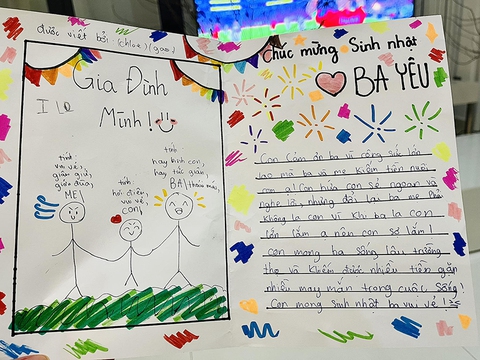 được viết bởi: (chloe) (gao)
Gia Đình
Mình!
I LO
tính
vui vẻ,
giận giữ,
giỡn đùa,
MẸ!
tính
hơi điên,
vui vẻ
con!
tính
hay bình con,
hay tức giận,
BA!
Chúc mừng Sinh nhật
BA YÊU
Con cảm ơn ba vì công sức lớn
lao mà ba và mẹ kiếm tiền nuôi
con ạ! Con hứa con sẽ ngoan và
nghe lời, nhưng đổi lại ba mẹ
không la con vì khi ba la con
lớn lắm ạ nên con sợ lắm!
Con mong ba sống lâu trường
thọ và kiếm được nhiều tiền gặp
nhiều may mắn trong cuộc sống!
Con mong sinh nhật ba vui vẻ!